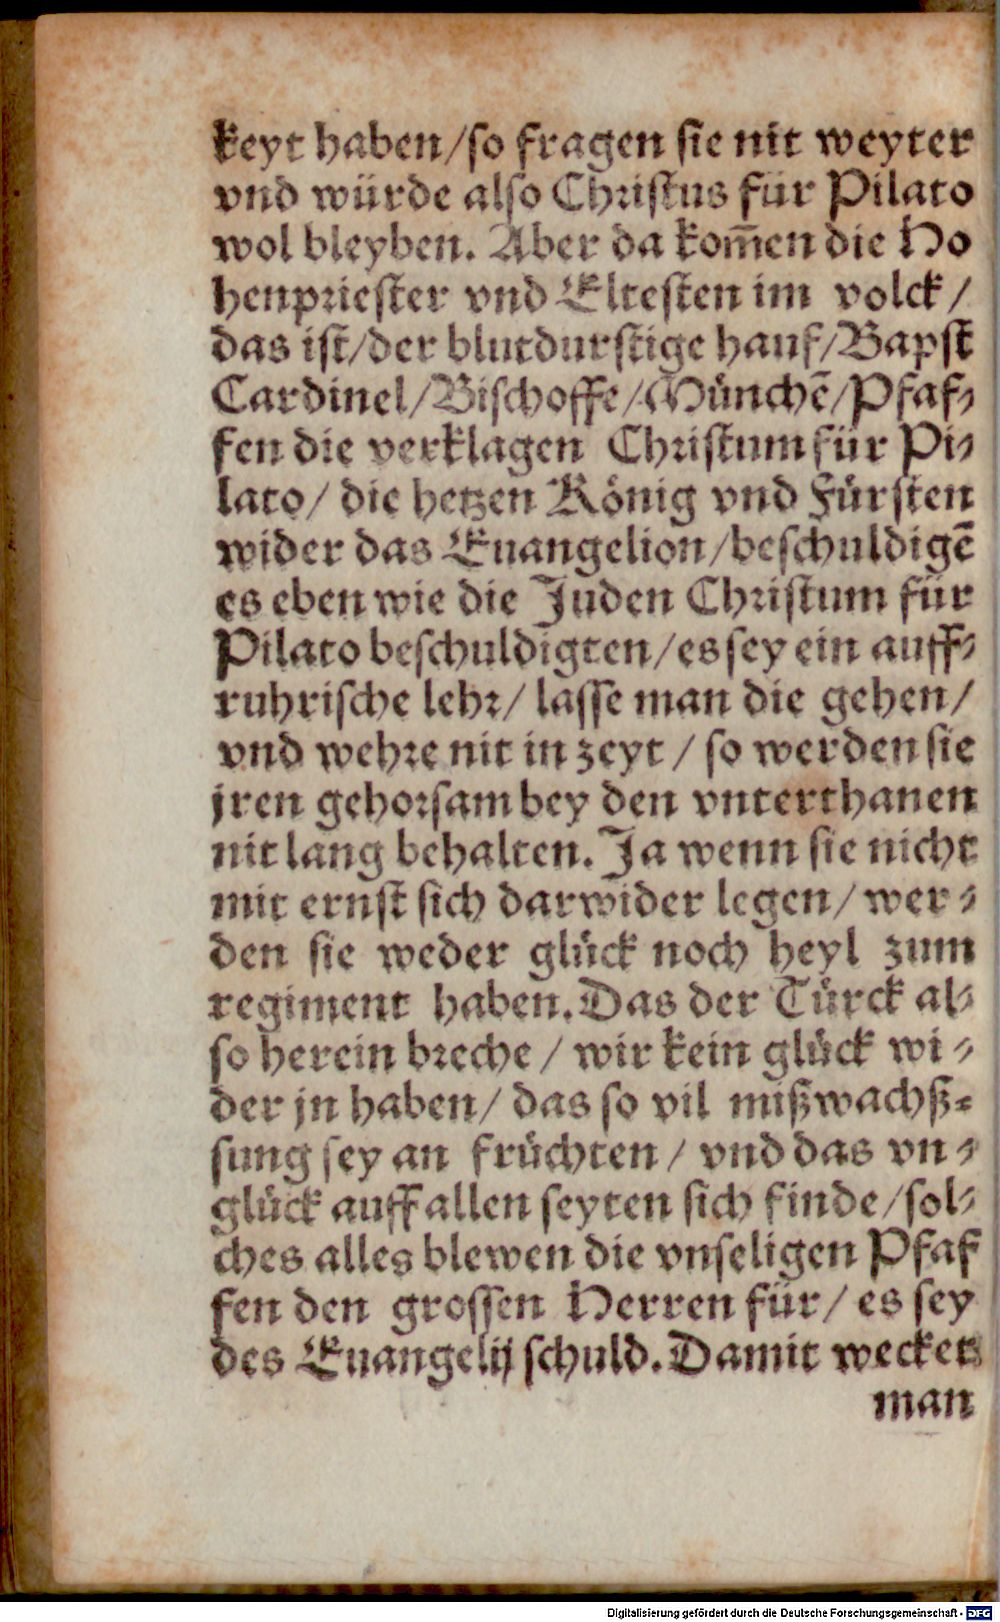 keyt haben/so fragen sie nit weyter
vnd würde also Christus für Pilato
wol bleyben. Aber da kom̄en die Ho
henpriester vnd Eltesten im volck/
das ist/der blutdurstige hauf/Bapst
Cardinel/Bischoffe/Münchē/Pfaf⸗
fen die verklagen Christum für Pi⸗
lato/ die hetzen König vnd Fürsten
wider das Euangelion/beschuldigē
es eben wie die Juden Christum für
Pilato beschuldigten/es sey ein auff⸗
ruhrische lehr/ lasse man die gehen/
vnd wehre nit in zeyt / so werden sie
jren gehorsam bey den vnterthanen
nit lang behalten. Ja wenn sie nicht
mit ernst sich darwider legen/ wer⸗
den sie weder glück noch heyl zum
regiment haben. Das der Türck al⸗
so herein breche / wir kein glück wi⸗
der jn haben/ das so vil mißwachß⸗
sung sey an früchten / vnd das vn⸗
glück auff allen seyten sich finde/sol⸗
ches alles blewen die vnseligen Pfaf
fen den grossen Herren für/ es sey
des Euangelij schuld. Damit wecket
man
Digitalisierung gefördert durch die Deutsche Forschungsgemeinschaft - DFG